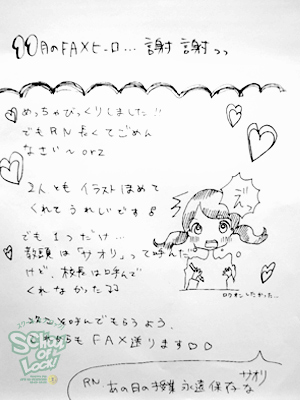 11月のFAXヒーロー… 謝謝っっ
めっちゃびっくりしました!!
でもRN長くてごめん
なさい〜orz
2人ともイラストほめて
くれてうれしいです♪
でも1つだけ…
教頭は「サオリ」って呼んだ
けど、校長は呼んで
くれなかった
次こそ呼んでもらうよう、
これからもFAX送ります♡♡
ロックオンしたかった…
SCHOOL OF LOCK!
RN あの日の授業永遠保存なサオリ